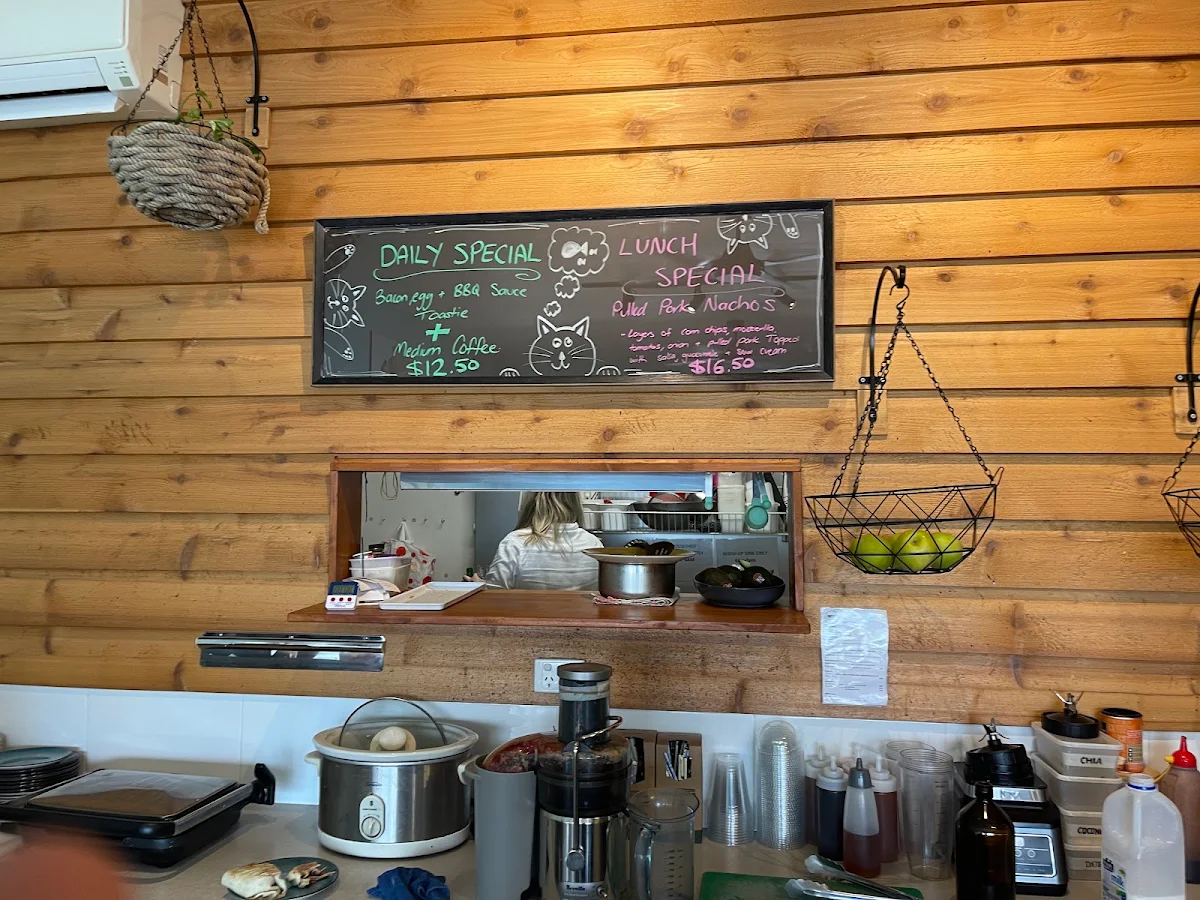 DAILY SPECIAL
Bacon, egg + BBQ Sauce
Toastie
+
Medium Coffee
$12.50
LUNCH
SPECIAL
Pulled Pork Nachos
- Layers of corn chips, mozzarella,
tomatoes, onion + pulled pork Topped
with salsa, guacamole + sour cream
$16.50
CHIA
Breville